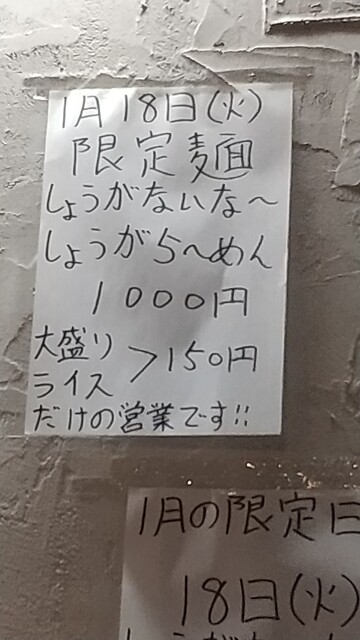 1月18日(火)
限定麺
しょうがないな〜
しょうがら〜めん
1000円
大盛り
ライス >150円
だけの営業です!!
1月の限定日
18日(火)